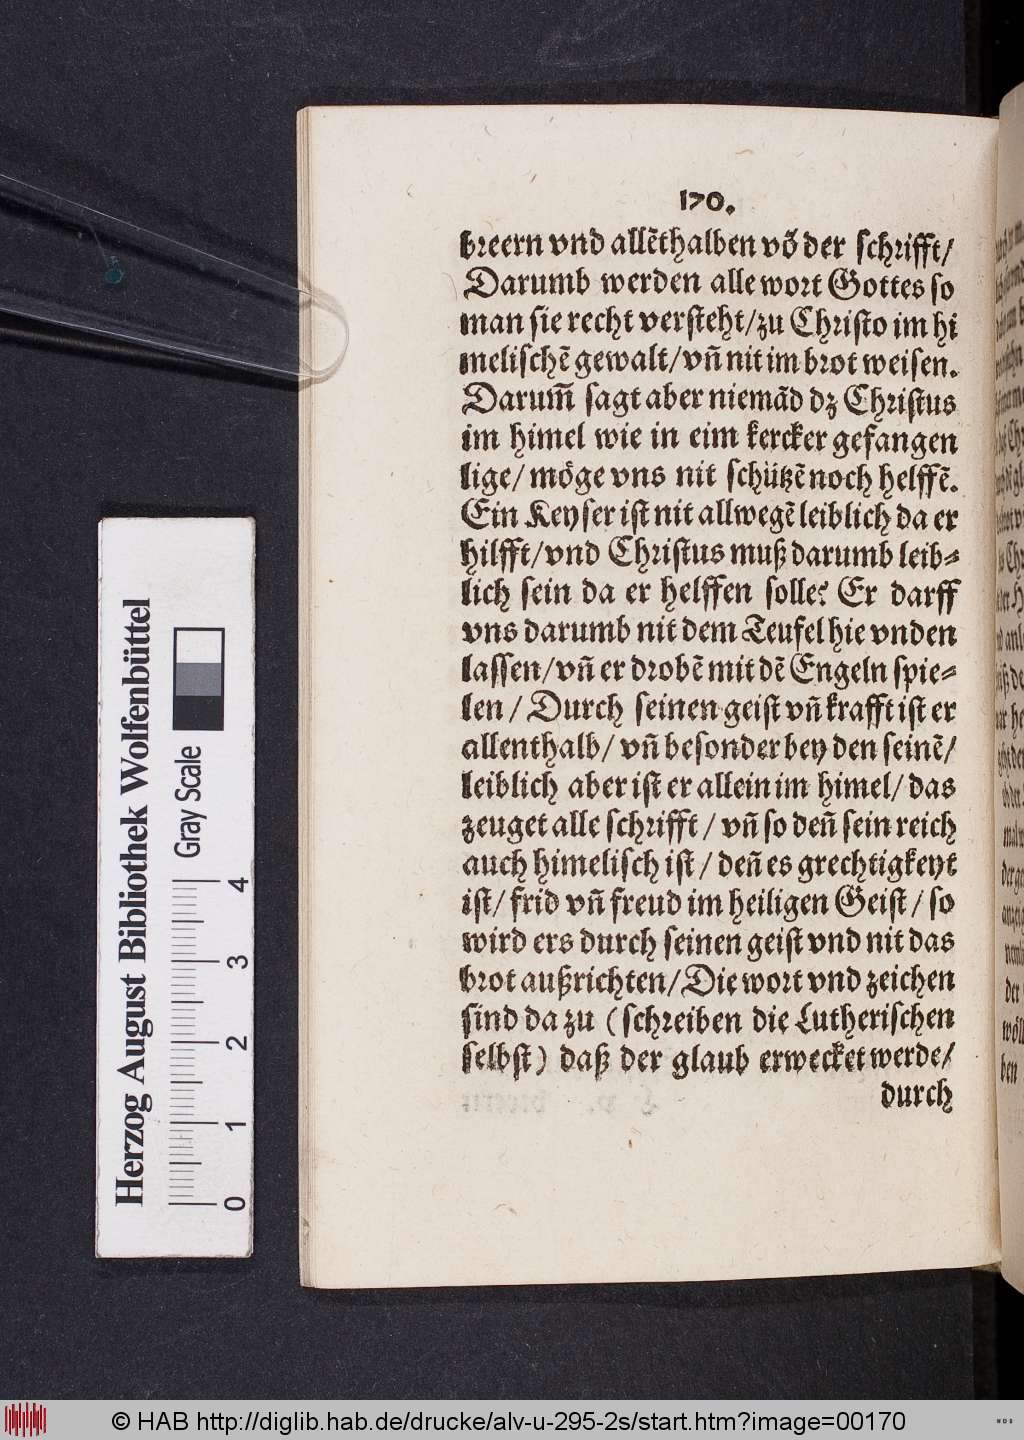 170.
breern vnd allēthalben vō der schrifft/
Darumb werden alle wort Gottes so
man sie recht versteht/zu Christo im hi
melischē gewalt/vn̄ nit im brot weisen.
Darum̄ sagt aber niemād dz Christus
im himel wie in eim kercker gefangen
lige/ möge vns nit schützē noch helffē.
Ein Keyser ist nit allwegē leiblich da er
hilfft/vnd Christus muß darumb leib⸗
lich sein da er helffen solle? Er darff
vns darumb nit dem Teufel hie vnden
lassen/vn̄ er drobē mit dē Engeln spie⸗
len / Durch seinen geist vn̄ krafft ist er
allenthalb/ vn̄ besonder bey den seinē/
leiblich aber ist er allein im himel/ das
zeuget alle schrifft / vn̄ so den̄ sein reich
auch himelisch ist / den̄ es grechtigkeyt
ist/ frid vn̄ freud im heiligen Geist / so
wird ers durch seinen geist vnd nit das
brot außrichten/ Die wort vnd zeichen
sind da zu (schreiben die Lutherischen
selbst) daß der glaub erwecket werde/
durch
Herzog August Bibliothek Wolfenbüttel
Gray Scale
0 1 2 3 4
© HAB http://diglib.hab.de/drucke/alv-u-295-2s/start.htm?image=00170